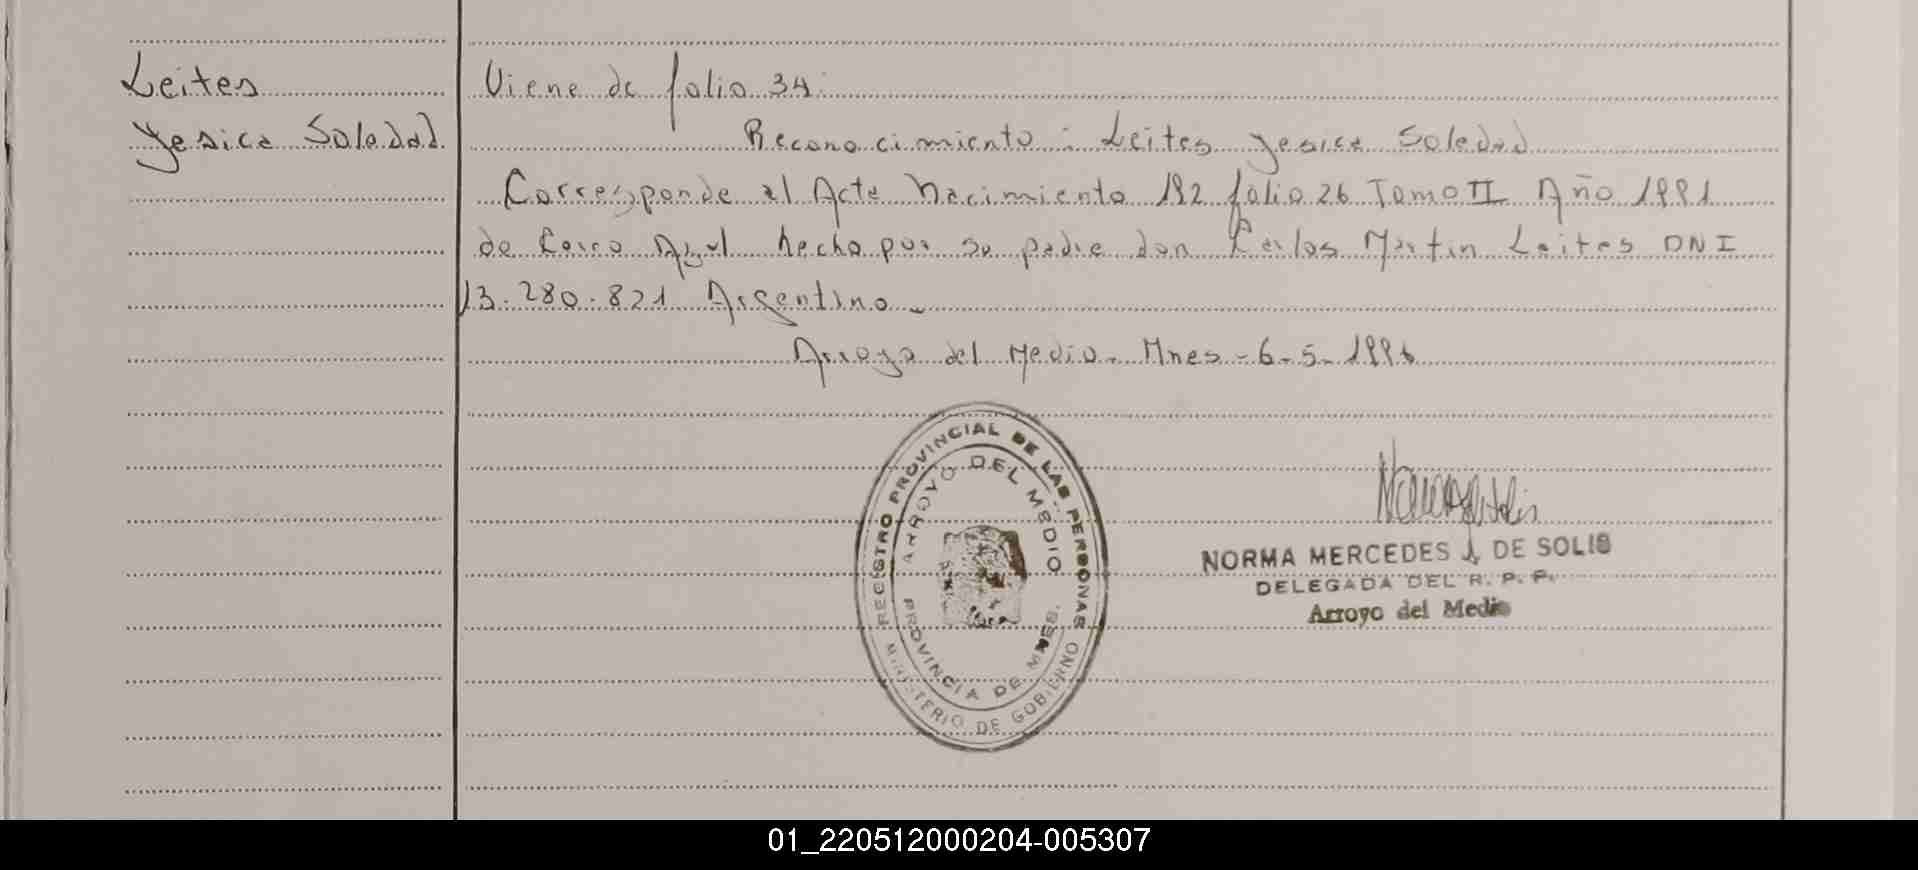 Leites
Yesica Soledad
Viene de folio 34:
Reconocimiento: Leites Yesica Soledad
Corresponde al Acta Nacimiento 192 folio 26 Tomo II Año 1991
de Cerro Azul hecho por su padre don Carlos Martin Leites DNI
13.280.821 Argentino.-
Arroyo del Medio. Mnes - 6-5-1996
REGISTRO PROVINCIAL DE LAS PERSONAS
MINISTERIO DE GOBIERNO
ARROYO DEL MEDIO
PROVINCIA DE MNES.
NORMA MERCEDES DE SOLIS
DELEGADA DEL R. P. P.
Arroyo del Medio
01_220512000204-005307